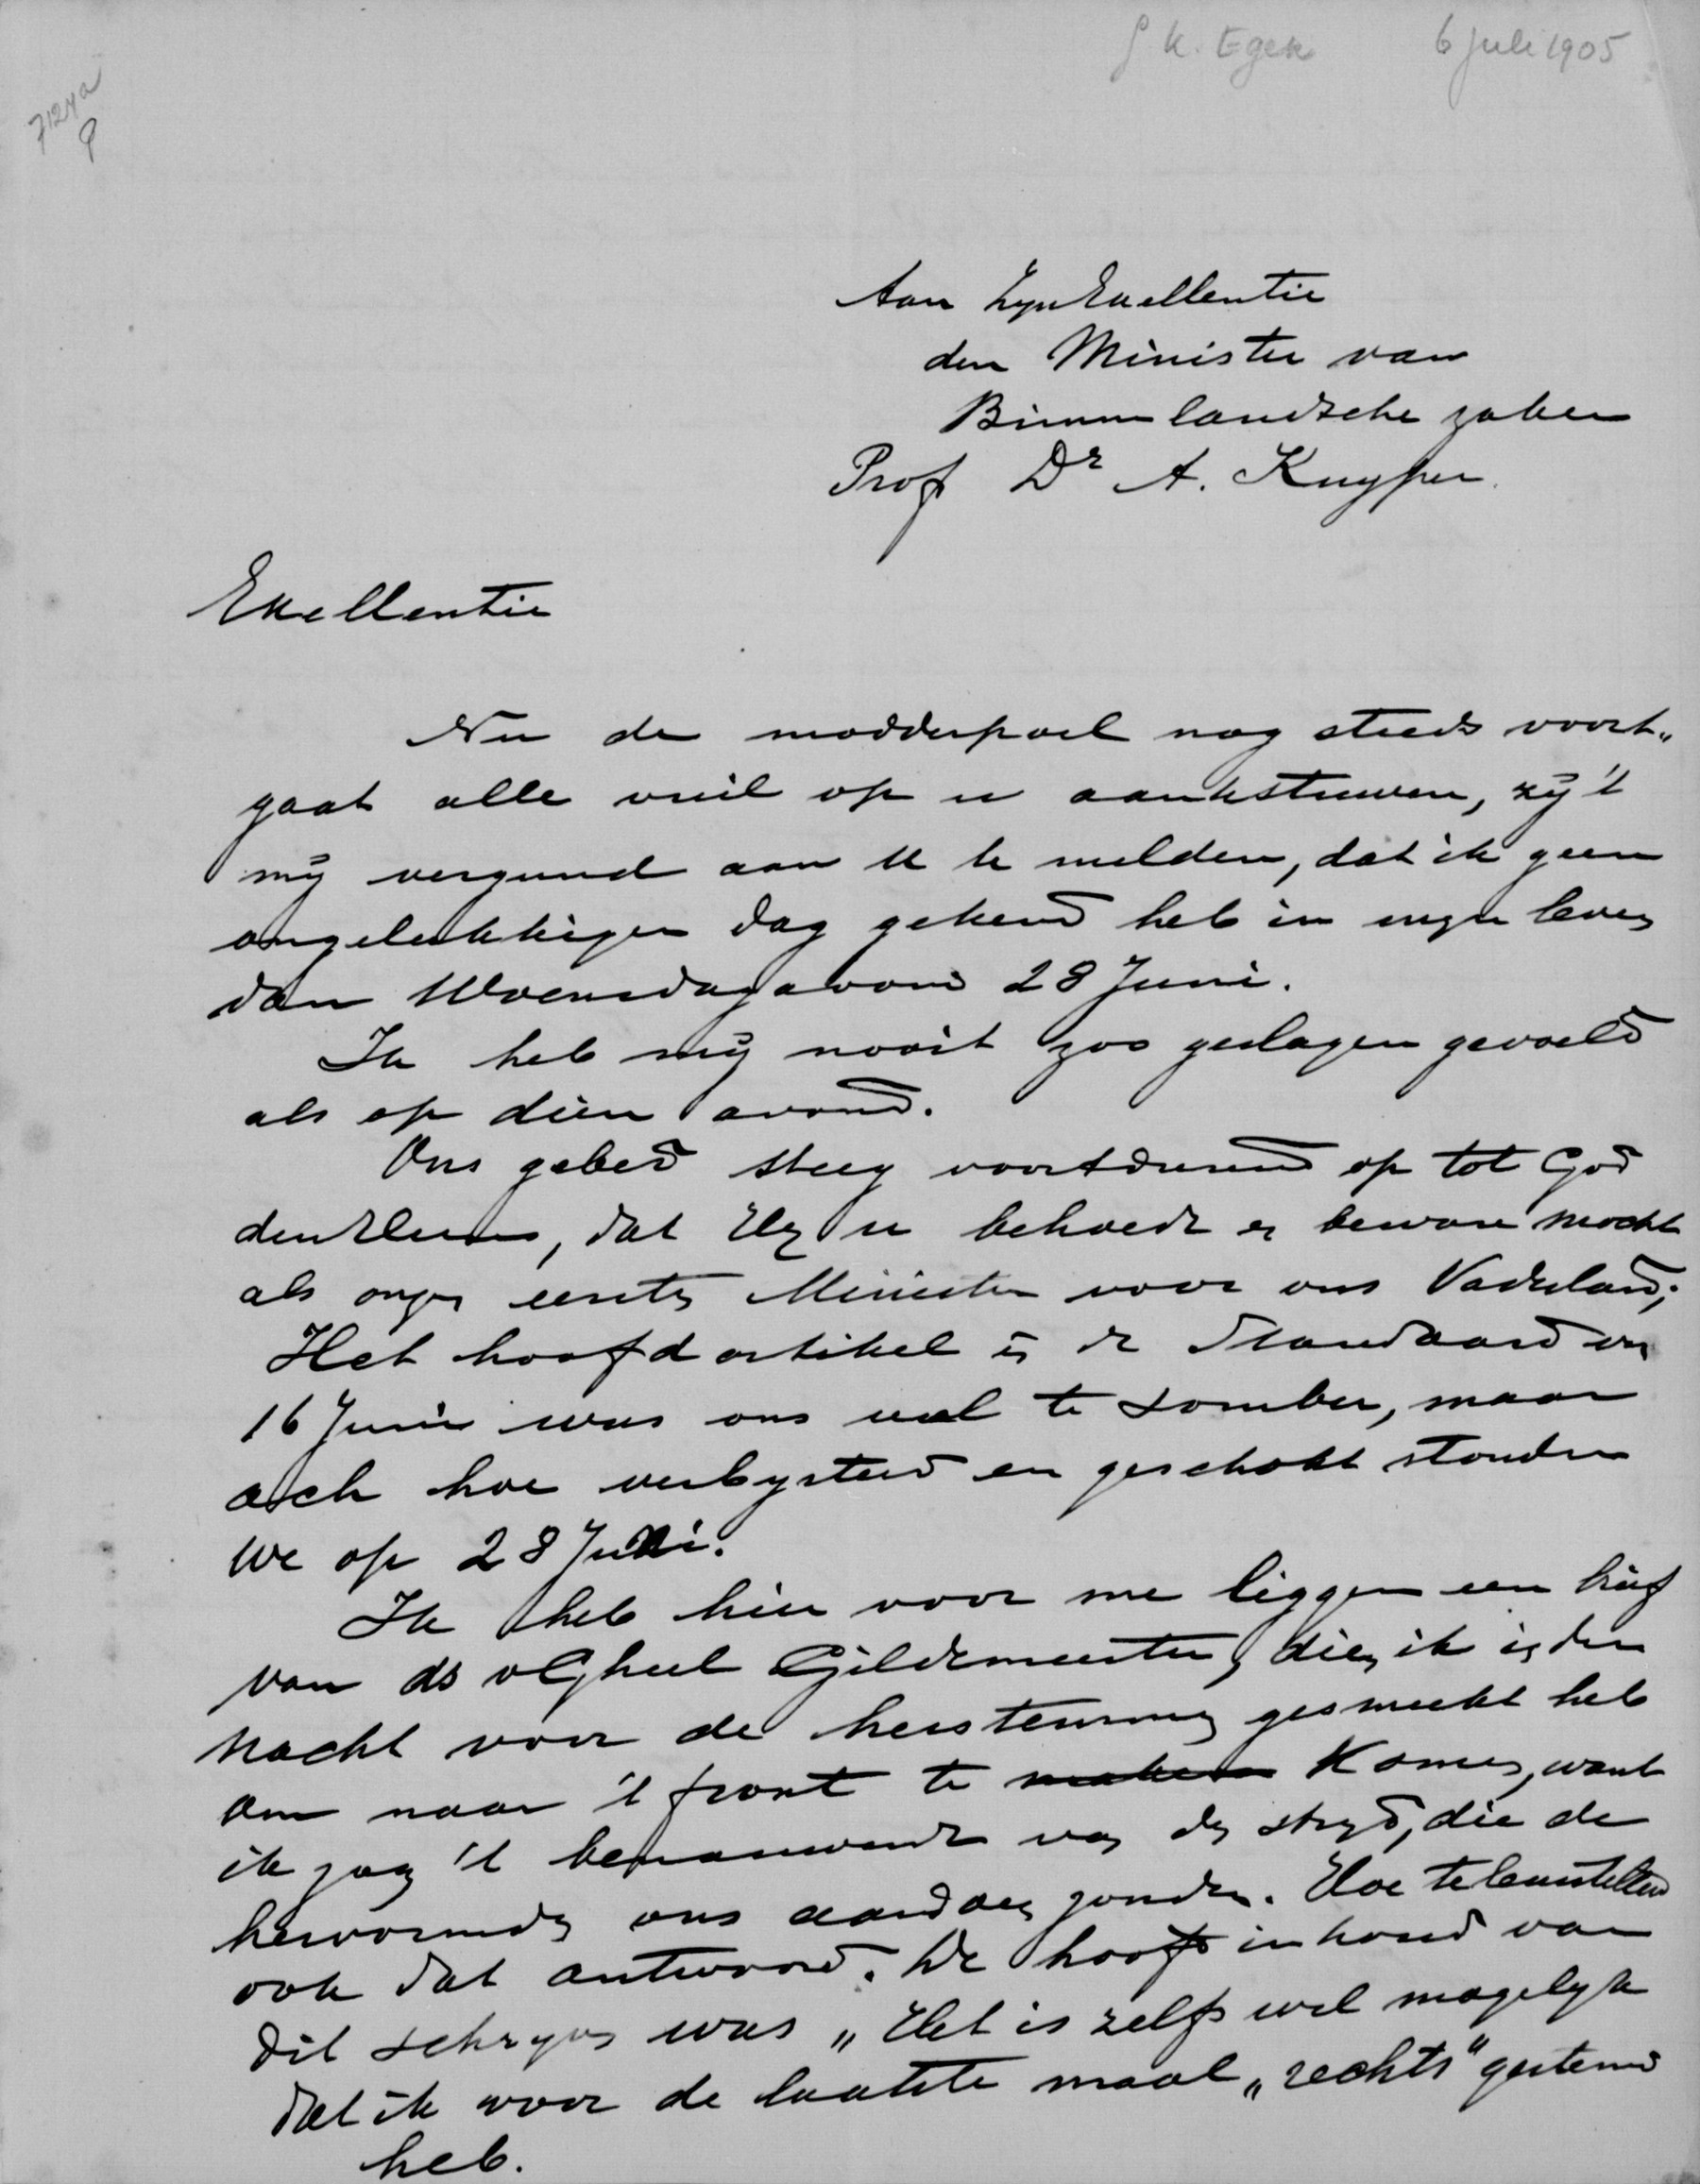 J. K. Eger 6 Juli 1905
7124a
Aan Zyn Exellentie
den Minister van
Binnenlandsche zaken
Prof Dr A. Kuyper.
Exellentie
Nu de modderpoel nog steeds voort„
gaat alle vuil op u aantestuwen, zij 't
mij vergund aan U te melden, dat ik geen
ongelukkigen dag gekend heb in myn leven
dan Woensdagavond 28 Juni.
Ik heb mij nooit zoo geslagen gevoeld
als op dien avond.
Ons gebed steeg voortdurend op tot God
den Heere, dat Hy u behoede en beware mocht
als onzen eersten Minister voor ons Vaderland;
Het hoofdartikel in de Standaard van
16 Juni was ons wel te somber, maar
ach hoe verbysterd en geschokt stonden
we op 28 Juni.
Ik heb hier voor me liggen een brief
van ds v Gheel Gildemeester, dien ik in den
nacht voor de herstemming gesmeekt heb
om naar 't front te maken komen, want
ik zag 't benauwende van den stryd, die de
hervormden ons aandoen zouden. Hoe teleurstellend
ook dat antwoord. De hoofdinhoud van
dit schryven was „Het is zelfs wel mogelyk
dat ik voor de laatste maal „rechts" gestemd
heb.